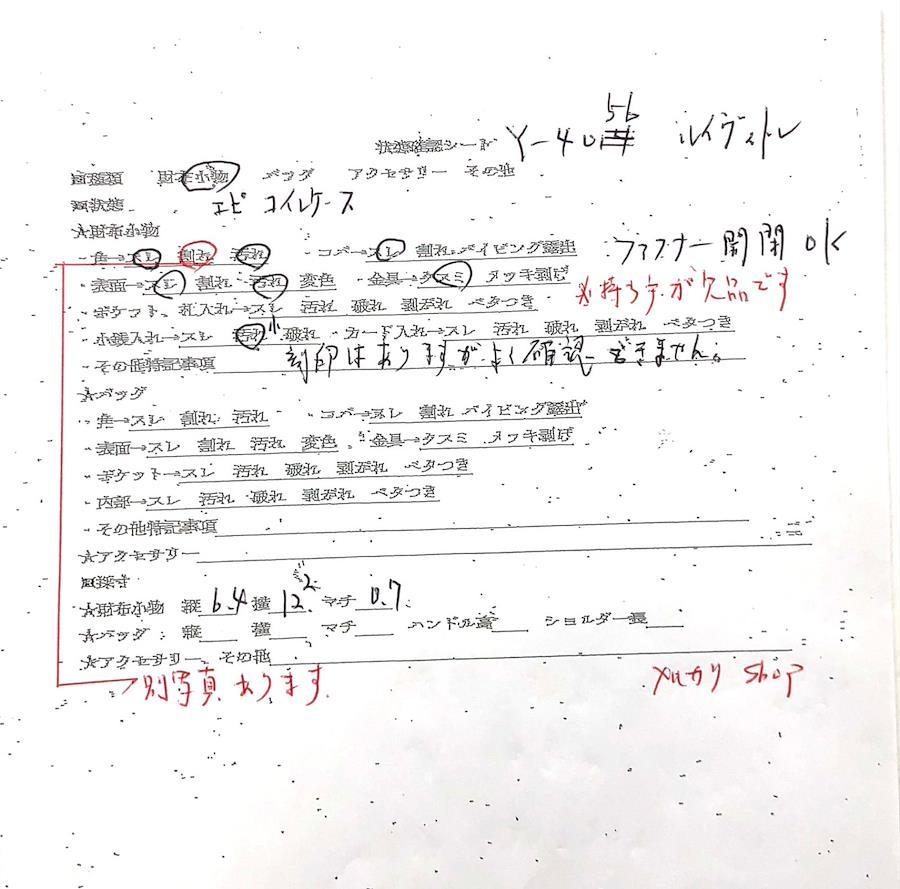 状態確認シート Y-4056 ルイヴィトン
□種類 財布小物 バッグ アクセサリー その他
□状態 エピ コインケース
★財布小物
・角→スレ 割れ 汚れ ・コバ→スレ 割れ パイピング露出 ファスナー開閉OK
・表面→スレ 割れ 汚れ 変色 ・金具→クスミ メッキ剥げ ※持ち手が欠品です
・ポケット、札入れ→スレ 汚れ 破れ 剥がれ ベタつき
・小銭入れ→スレ 汚れ 小 破れ ・カード入れ→スレ 汚れ 破れ 剥がれ ベタつき
・その他特記事項 刻印はありますがよく確認できません。
★バッグ
・角→スレ 割れ 汚れ ・コバ→スレ 割れ パイピング露出
・表面→スレ 割れ 汚れ 変色 ・金具→クスミ メッキ剥げ
・ポケット→スレ 汚れ 破れ 剥がれ ベタつき
・内部→スレ 汚れ 破れ 剥がれ ベタつき
・その他特記事項
★アクセサリー
□採寸
★財布小物 縦 6.4 横 12.2 マチ 0.7
★バッグ: 縦 横 マチ ハンドル高 ショルダー長
★アクセサリー、その他
別写真あります. メルカリ shop